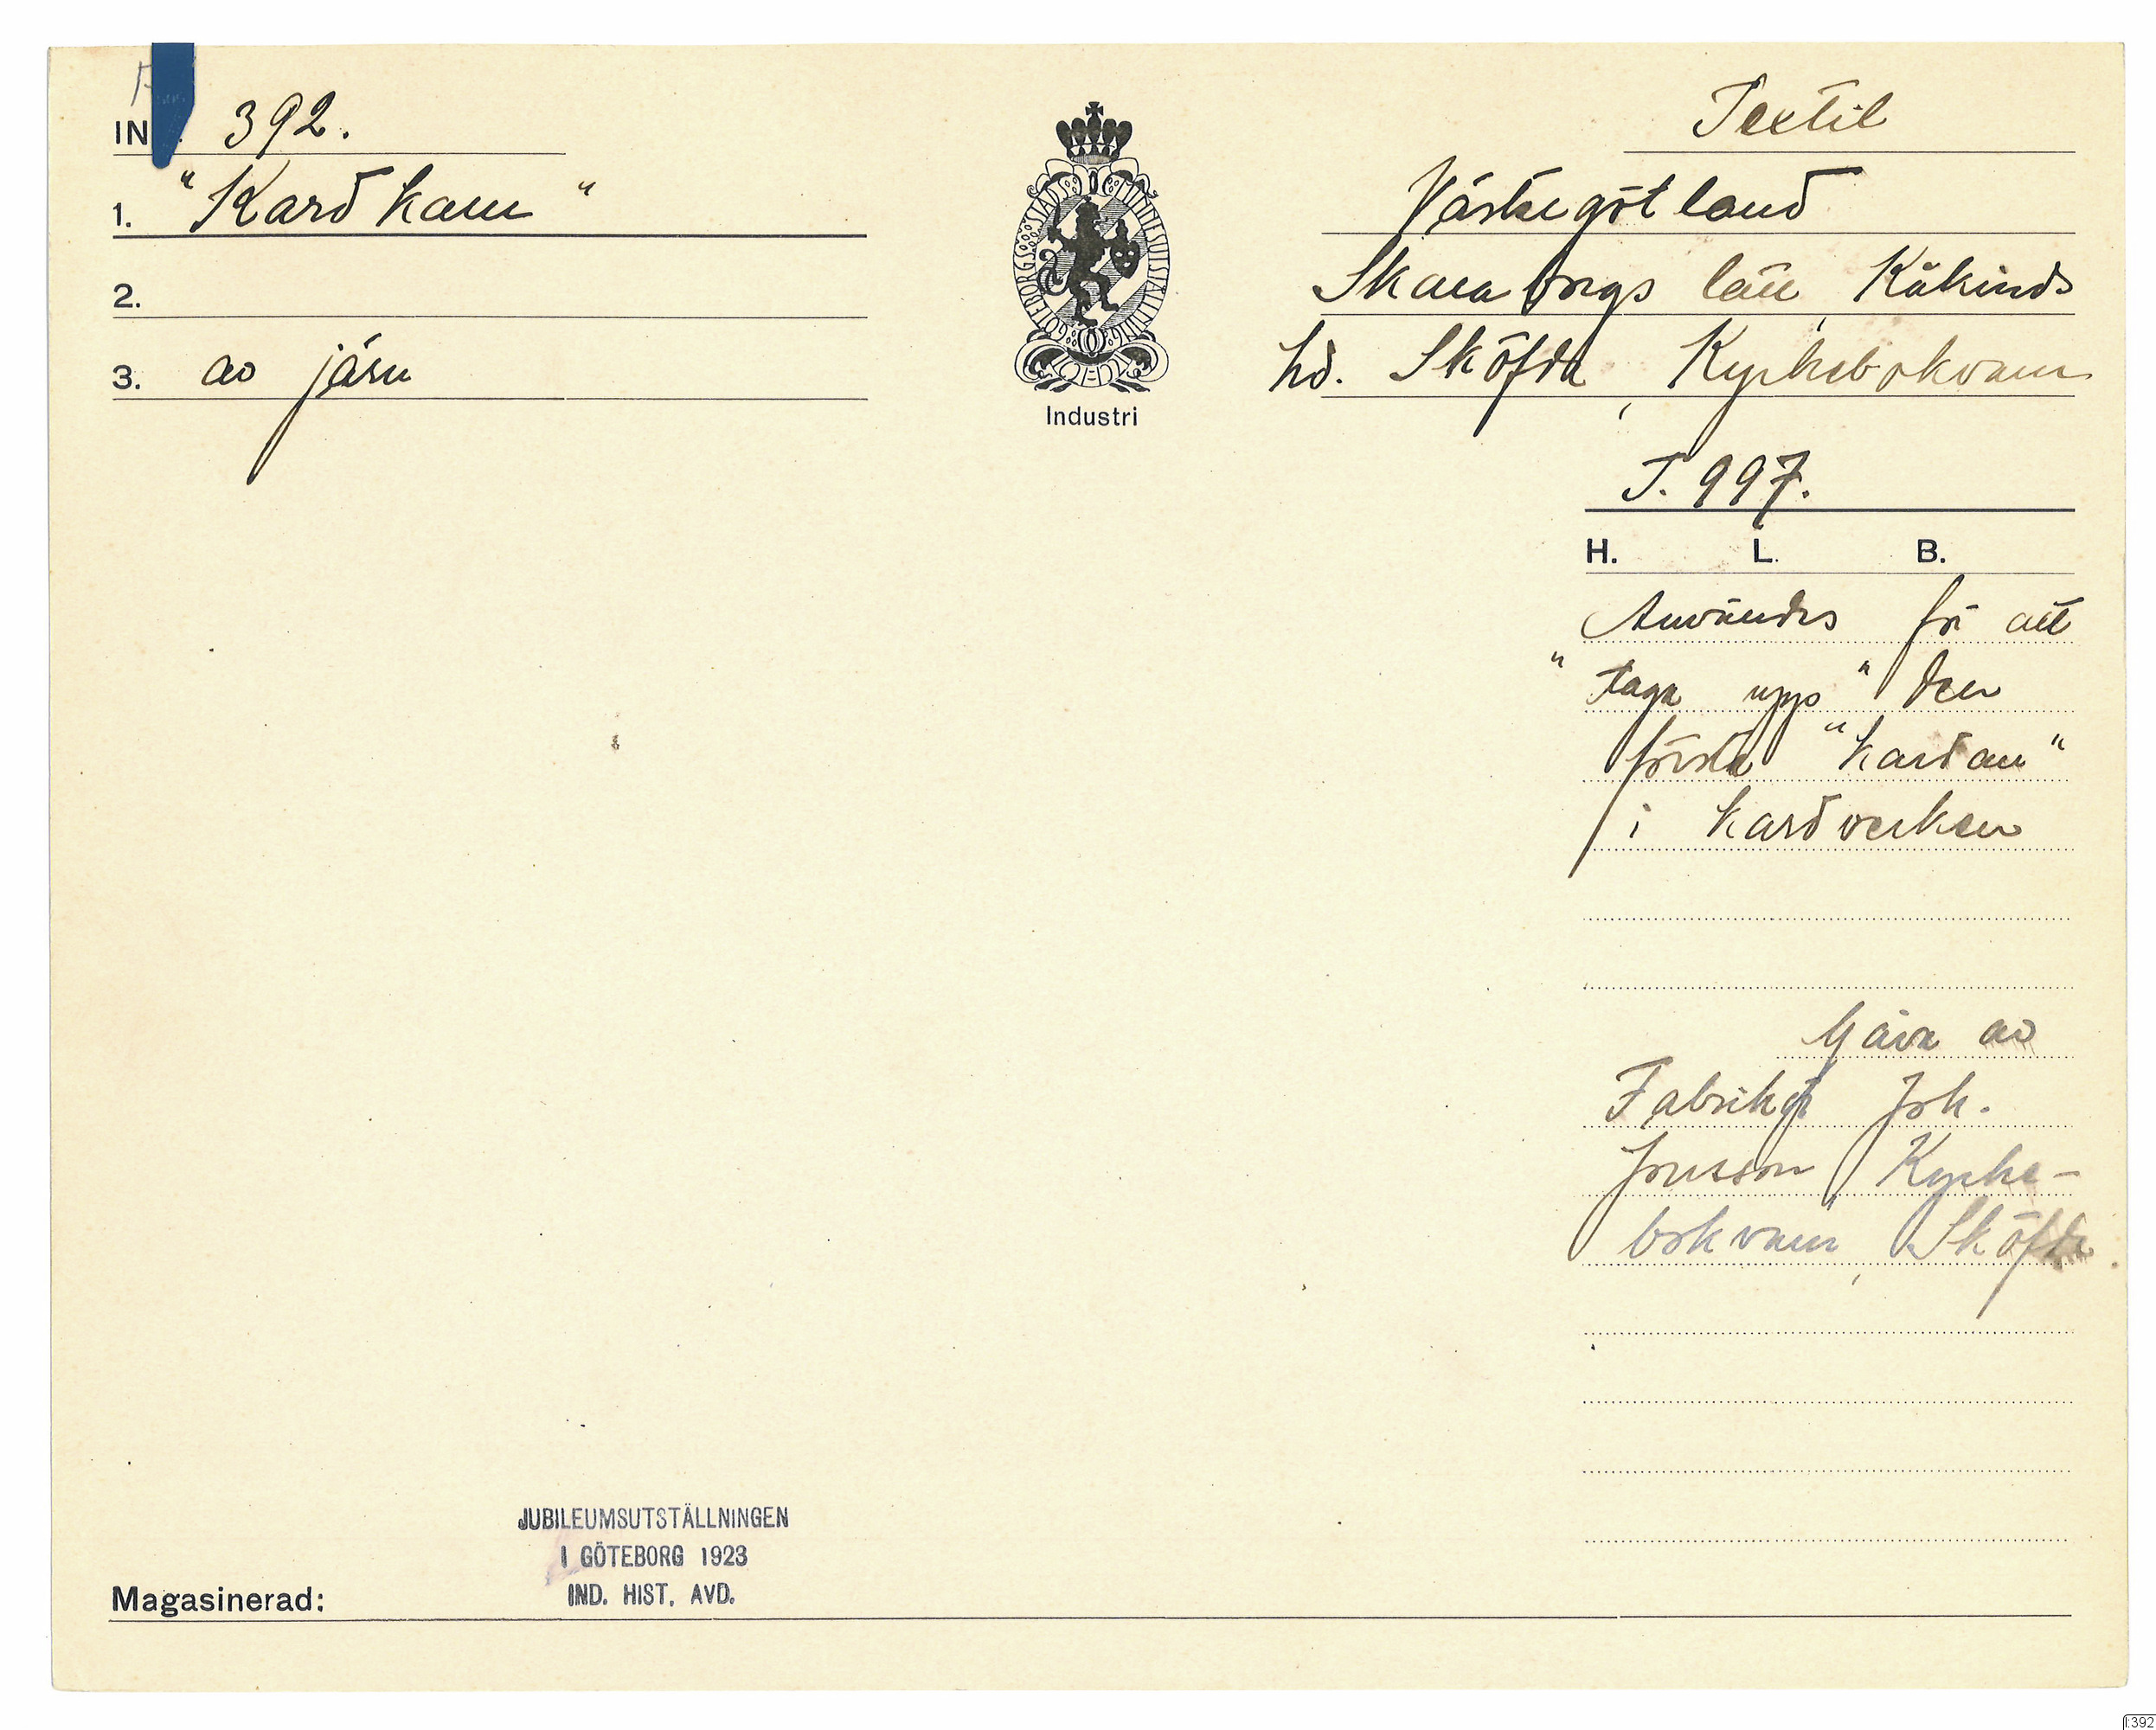 IN 392.
1. "Kardkam"
2.
3. av järn
GÖTEBORGS STADS MINNESUTSTÄLLNING
Industri
Textil
Västergötland
Skaraborgs län, Kåkinds
hd. Sköfde, Kyrkebokvarn
T. 997.
H. L. B.
Användes för att
"taga upp" den
första "kardan"
i kardverken
Gåva av
Fabrikör Joh.
Jonsson, Kyrke-
bokvarn, Sköfde.
JUBILEUMSUTSTÄLLNINGEN
I GÖTEBORG 1923
IND. HIST. AVD.
Magasinerad:
I:392